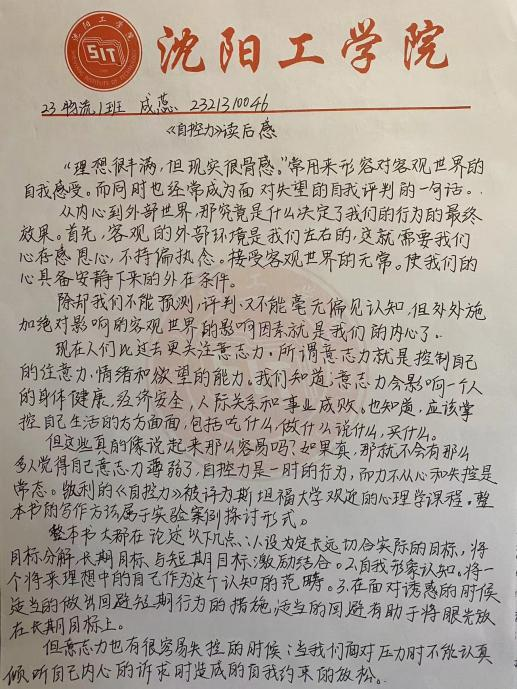 沈阳工学院
SIT
23物流1班 成蕊 2321310046
《自控力》读后感
“理想很丰满,但现实很骨感。”常用来形容对客观世界的
自我感受。而同时也经常成为面对失望的自我评判的一句话。
从内心到外部世界,那究竟是什么决定了我们的行为的最终
效果。首先,客观的外部环境是我们左右的,这就需要我们
心存感恩心,不持偏执念。接受客观世界的无常。使我们的
心具备安静下来的外在条件。
除却我们不能预测,评判又不能毫无偏见认知,但处处施
加绝对影响的客观世界的影响因素就是我们的内心了。
现在人们比过去更关注意志力。所谓意志力就是控制自己
的注意力、情绪和欲望的能力。我们知道,意志力会影响一个人
的身体健康、经济安全,人际关系和事业成败。也知道,应该掌
控自己生活的方方面面,包括吃什么,做什么说什么,买什么。
但这些真的像说起来那么容易吗?如果真,那就不会有那么
多人觉得自己意志力薄弱了,自控力是一时的行为,而力不从心和失控是
常态。凯利的《自控力》被评为斯坦福大学观近的心理学课程。整
本书的写作方法属于实验案例探讨形式。
整本书大都在论述以下几点:1.设为定长远切合实际的目标,将
目标分解,长期目标与短期目标激励结合。2.自我形案认知。将一
个将来理想中的自己作为这个认知的范畴。3.在面对诱惑的时候
适当的做出回避短期行为的措施,适当的回避有助于将眼光放
在长期目标上。
但意志力也有很容易失控的时候:当我们面对压力时不能认真
倾听自己内心的诉求时造成的自我约束的放松。